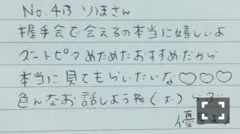 No.413 りほさん
握手会で会えるの本当に嬉しいよ
ズートピアめためたおすすめだから
本当に見てもらいたいな♡♡♡
色んなお話しようね(・x・)
優